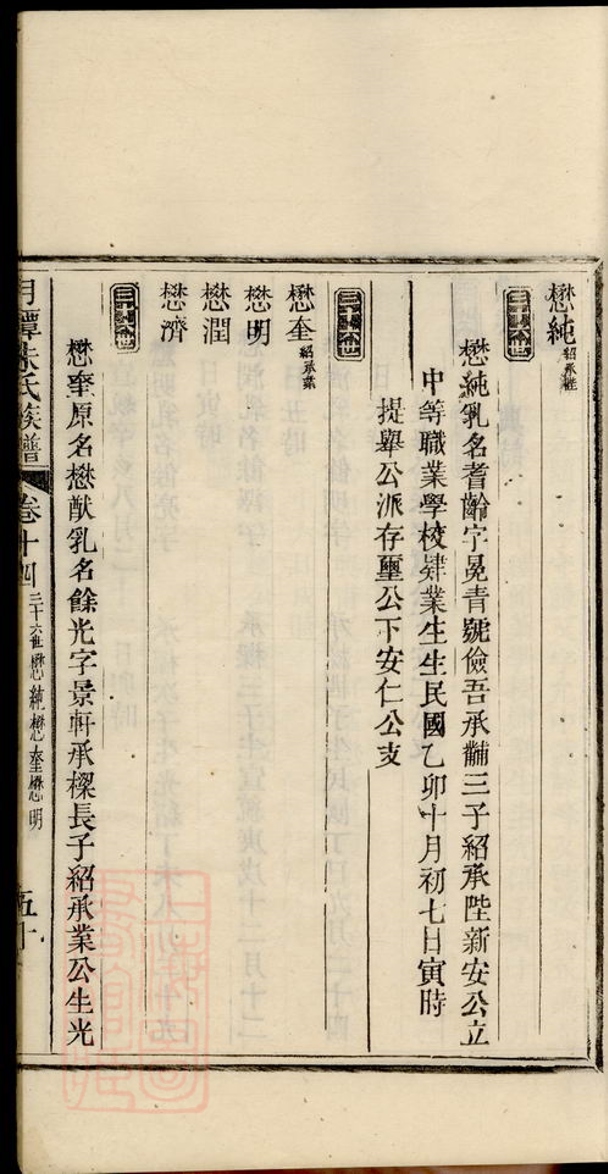 懋純紹承陛
三十六世
懋純乳名耆齡字冕青號儉吾承黼三子紹承陛新安公立
中等職業學校肄業生生民國乙卯十月初七日寅時
提舉公派存璽公下安仁公支
三十六世
懋奎紹承業
懋明
懋潤
懋濟
三十六世
懋奎原名懋猷乳名餘光字景軒承樑長子紹承業公生光
月潭朱氏族譜 卷十四 三十六世懋純懋奎懋明 五十